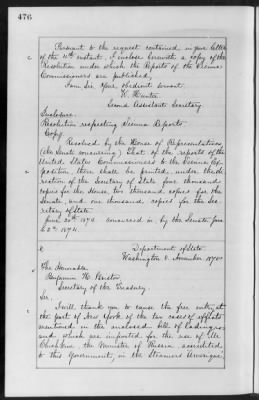 476
Pursuant to the request contained in your letter
of the 4th instant, I inclose herewith a copy of the
Resolution under which the Reports of the Vienna
Commissioners are published,
I am Sir, Your obedient servant,
W. Hunter
Second Assistant Secretary
Inclosure.
Resolution respecting Vienna Reports
Copy.
Resolved by the House of Representatives
(the Senate concurring) That of the reports of the
United States Commissioners to the Vienna Ex-
position, there shall be printed, under the di-
rection of the Secretary of State four thousand
copies for the House, two thousand copies for the
Senate, and one thousand copies for the Sec-
retary of State
June 20th 1874 concurred in by the Senate June
22d 1874.
Department of State
Washington 8. November 1875
The Honorable
Benjamin H. Bristow
Secretary of the Treasury.
Sir,
I will thank you to cause the free entry, at
the port of New York of the two cases of effects
mentioned in the enclosed bill of lading,
and which are imported for the use of Mr
the Minister of Russia, accredited
to this Government, in the Steamers